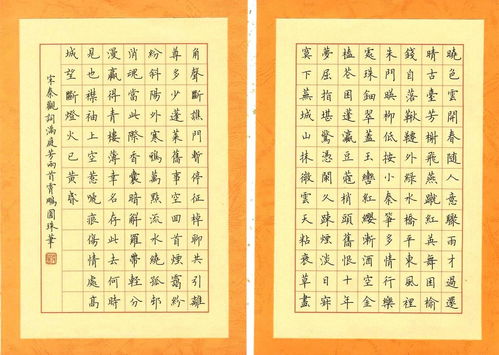 曉色雲開春隨人意驟雨才過還
晴古臺芳榭飛燕蹴紅英舞困榆
錢自落鞦韆外綠水橋平東風裡
朱門映柳低按小秦箏多情行樂
處珠鈿翠蓋玉轡紅纓漸酒空金
榼花困蓬瀛豆蔻梢頭舊恨十年
夢屈指堪驚憑闌久疎煙淡日寂
寞下蕪城山抹微雲天粘衰草畫
角聲斷譙門暫停征棹聊共引離
尊多少蓬萊舊事空回首煙靄紛
紛斜陽外寒鴉萬點流水繞孤邨
消魂當此際香囊暗解羅帶輕分
漫贏得青樓薄幸名存此去何時
見也襟袖上空惹啼痕傷情處高
城望斷燈火已黃昏
宋秦觀詞滿庭芳兩首霄鵬園珠筆